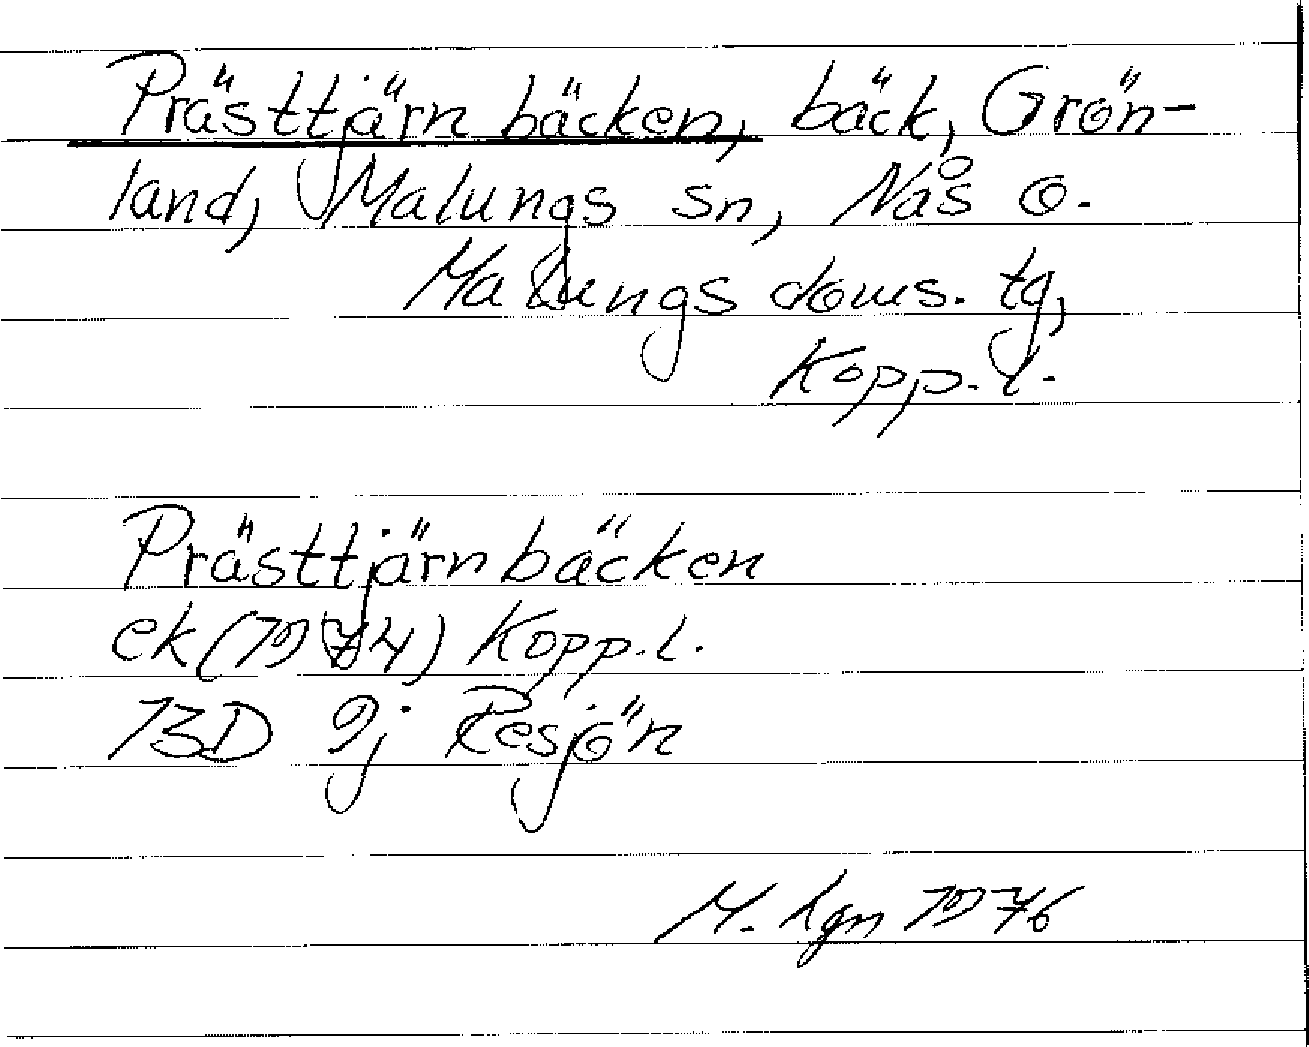 Prästtjärnbäcken, bäck, Grön-
land, Malungs sn, Nås o.
Malungs doms. tg,
Kopp. l.
Prästtjärnbäcken
ek (1974) Kopp. l.
13D 9j Resjön
M. Lgn 1976